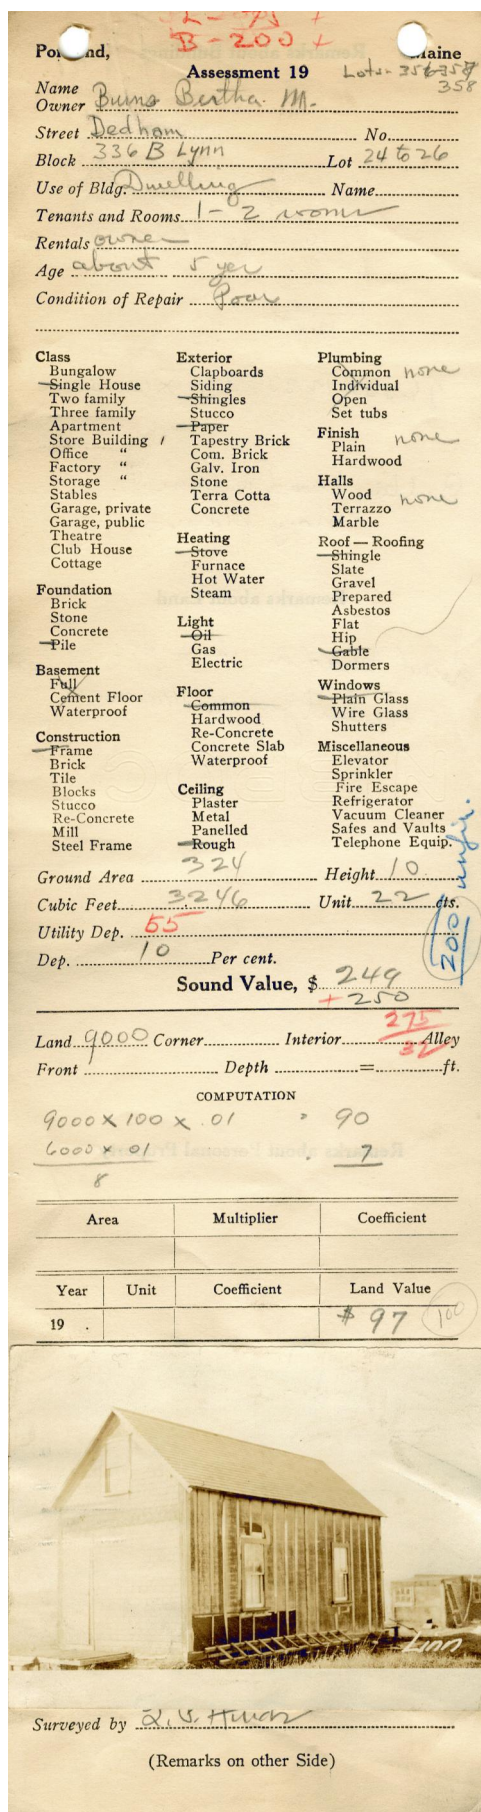 L - 975 +
B - 200 +
Portland, Maine
Assessment 19
Lots - 356-357
358
Name
Owner Burns Bertha M.
Street Dedham No.
Block 336 B Lynn Lot 24 to 26
Use of Bldg. Dwelling Name
Tenants and Rooms 1 - 2 rooms
Rentals owner
Age about 5 yrs
Condition of Repair Poor
Class
Bungalow
Single House
Two family
Three family
Apartment
Store Building
Office "
Factory "
Storage "
Stables
Garage, private
Garage, public
Theatre
Club House
Cottage
Foundation
Brick
Stone
Concrete
Pile
Basement
Full
Cement Floor
Waterproof
Construction
Frame
Brick
Tile
Blocks
Stucco
Re-Concrete
Mill
Steel Frame
Exterior
Clapboards
Siding
Shingles
Stucco
Paper
Tapestry Brick
Com. Brick
Galv. Iron
Stone
Terra Cotta
Concrete
Heating
Stove
Furnace
Hot Water
Steam
Light
Oil
Gas
Electric
Floor
Common
Hardwood
Re-Concrete
Concrete Slab
Waterproof
Ceiling
Plaster
Metal
Panelled
Rough
Plumbing
Common none
Individual
Open
Set tubs
Finish
Plain none
Hardwood
Halls
Wood none
Terrazzo
Marble
Roof — Roofing
Shingle
Slate
Gravel
Prepared
Asbestos
Flat
Hip
Gable
Dormers
Windows
Plain Glass
Wire Glass
Shutters
Miscellaneous
Elevator
Sprinkler
Fire Escape
Refrigerator
Vacuum Cleaner
Safes and Vaults
Telephone Equip.
200 unfin.
Ground Area 324 Height 10
Cubic Feet 3246 Unit 22 cts.
Utility Dep. 55
Dep. 10 Per cent.
Sound Value, $ 249
+ 250
275
Land 9000 Corner Interior Alley
Front Depth = ft.
COMPUTATION
9000 x 100 x .01 = 90
6000 x 01 7
8
Area Multiplier Coefficient
Year Unit Coefficient Land Value
19 . $ 97 100
Linn
Surveyed by
(Remarks on other Side)